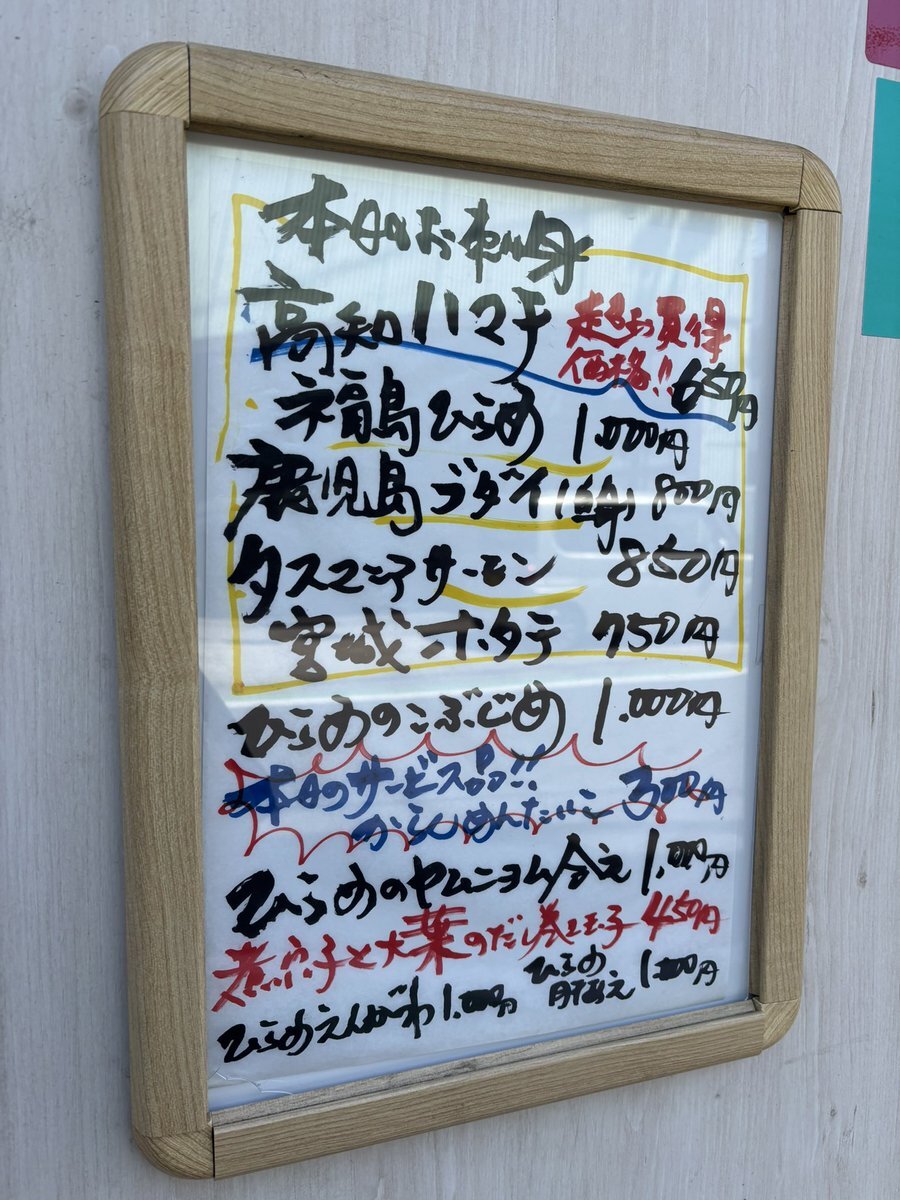 本日のお刺身
高知ハマチ 超お買得
価格!! 650円
福島ひらめ 1.000円
鹿児島ブダイ 800円
タスマニアサーモン 850円
宮城ホタテ 750円
ひらめのこぶじめ 1.000円
本日のサービス品!!
からしめんたいこ 300円
ひらめのヤムニョム合え 1.000円
煮穴子と大葉のだし巻玉子 450円
ひらめえんがわ 1.000円 ひらめ
肝あえ 1.000円